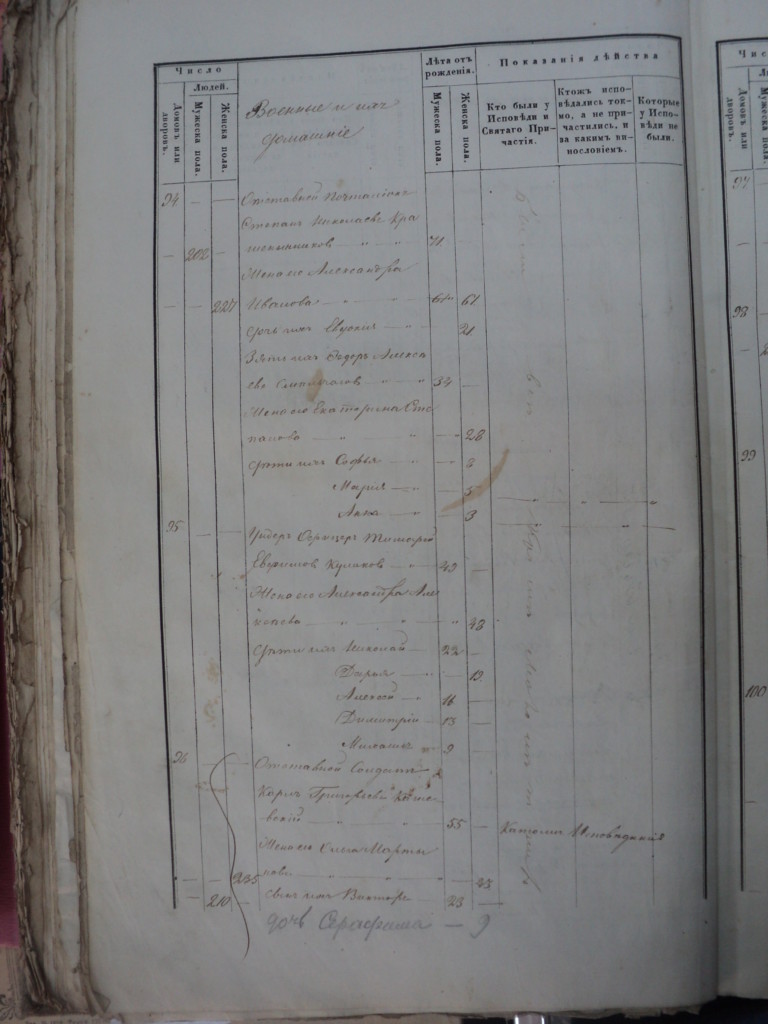 Число
Людей.
Домовъ или дворовъ.
Мужеска пола.
Женска пола.
Военные и ихъ
домашніе
Лѣта отъ рожденія.
Мужеска пола.
Женска пола.
Показанія дѣйства
Кто были у Исповѣди и Святаго Причастія.
Ктожъ исповѣдались токмо, а не причастились, и за какимъ винословіемъ.
Которые у Исповѣди не были.
94 — — Отставной Почталіонъ
Степанъ Николаевъ Кра
— 202 — шенинниковъ — " — " 71
Жена его Александра
— — 227 Иванова — " — " 61
дочь ихъ Евдокія — " 21
Зять ихъ Ѳедоръ Алекса
евъ — " 34 —
Жена его Екатерина Сте
панова — " — " — 28
дѣти ихъ Софья — " — 8
Марія — " — 5
Анна — " 3
95 — — Унтеръ Офицеръ Тимофей
Куликовъ — " 49 —
Жена его Александра Але
" — " — 48
дѣти ихъ Николай — 22 —
Дарья — " — 19
Алексей — " 16 —
Димитрій — " 13 —
9 —
96 — Отставной Солдатъ
Григорьевъ
вскій — " 55 — Католич Исповѣданія
Жена его Марты
нова — " — " 43
— — 235
— 210 — сынъ ихъ Викторъ — 23 —
дочь Серафима — 9
Число
Домовъ или дворовъ.
97
98
99
100